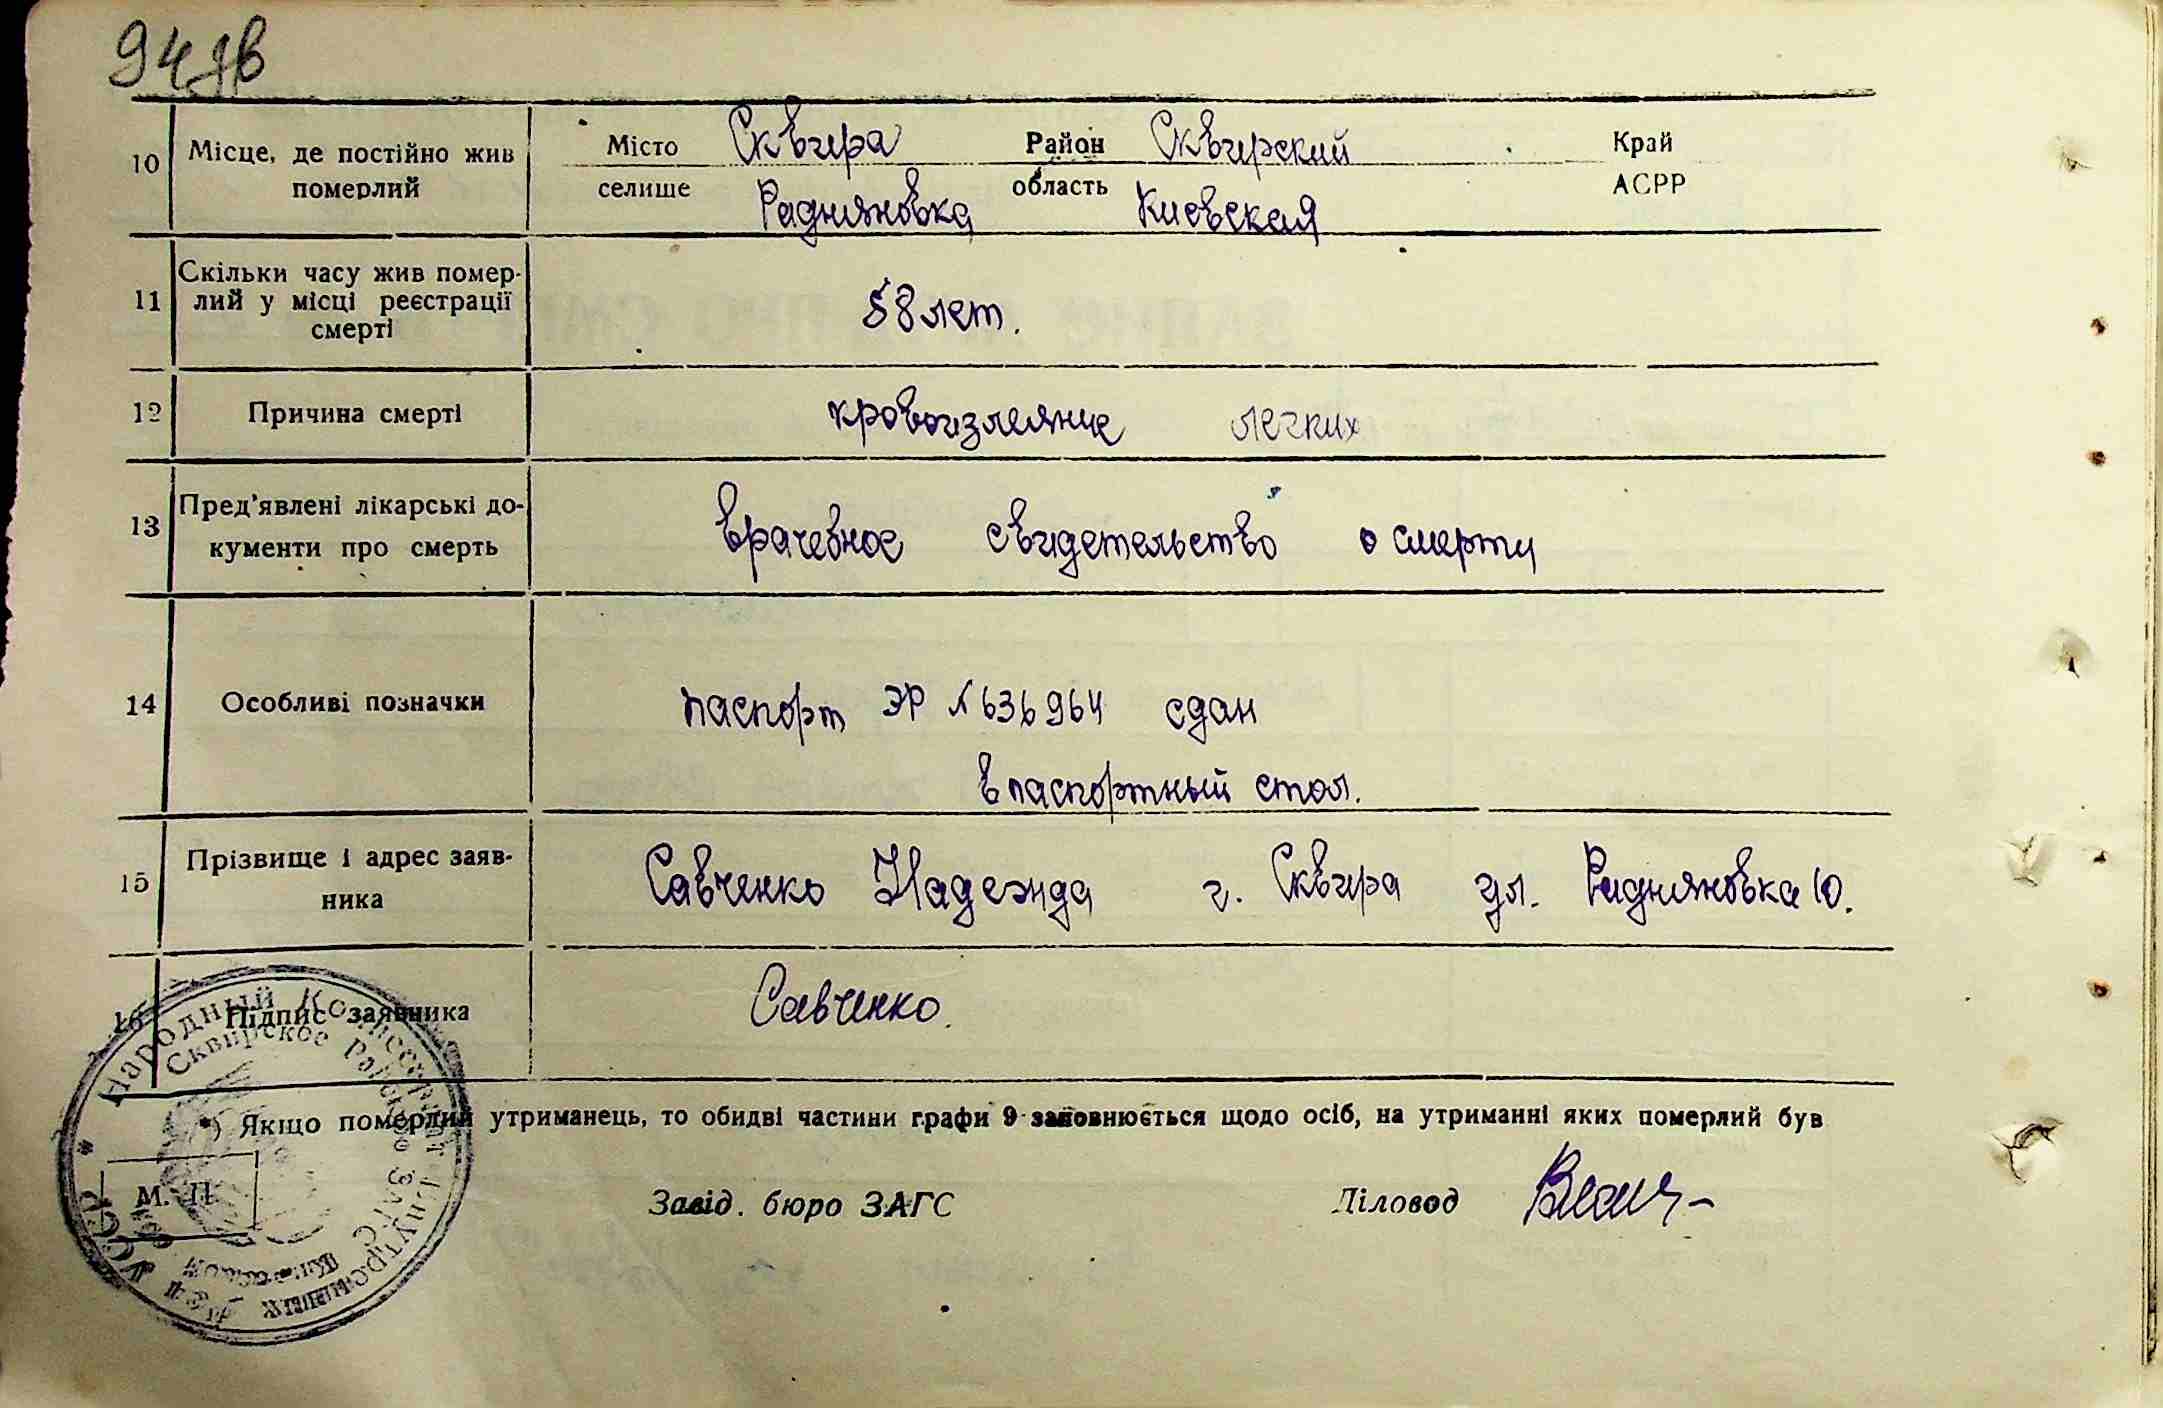 10 Місце, де постійно жив померлий
Місто Сквира Район Сквирский Край
селище Радняновка область Киевская АСРР
11 Скільки часу жив померлий у місці реєстрації смерті
58 лет.
12 Причина смерті
кровоизлеяние легких
13 Пред'явлені лікарські документи про смерть
врачебное свидетельство о смерти
14 Особливі позначки
паспорт ЭР № 636964 сдан
в паспортный стол.
15 Прізвище і адрес заявника
Савченко Надежда г. Сквира ул. Радняновка 10.
16 Підпис заявника
Савченко.
*) Якщо померлий утриманець, то обидві частини графи 9 заповнюється щодо осіб, на утриманні яких померлий був
М. П.
Завід. бюро ЗАГС Діловод
Народный Комиссариат Внутренних Дел УССР
Сквирское Районное ЗАГС